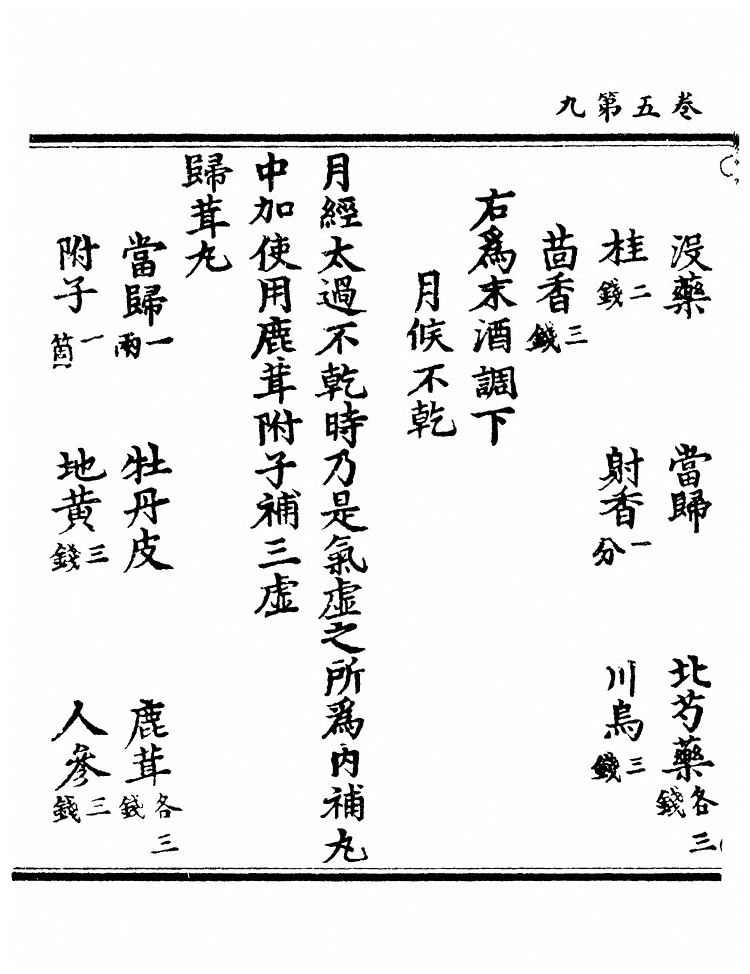 卷五第九
没藥 當歸 北芍藥各三錢
桂二錢 射香一分 川烏三錢
茴香三錢
右爲末酒調下
月候不乾
月經太過不乾時乃是氣虛之所爲内補丸
中加使用鹿茸附子補三虛
歸茸丸
當歸一兩 牡丹皮 鹿茸各三錢
附子一箇 地黄三錢 人參三錢